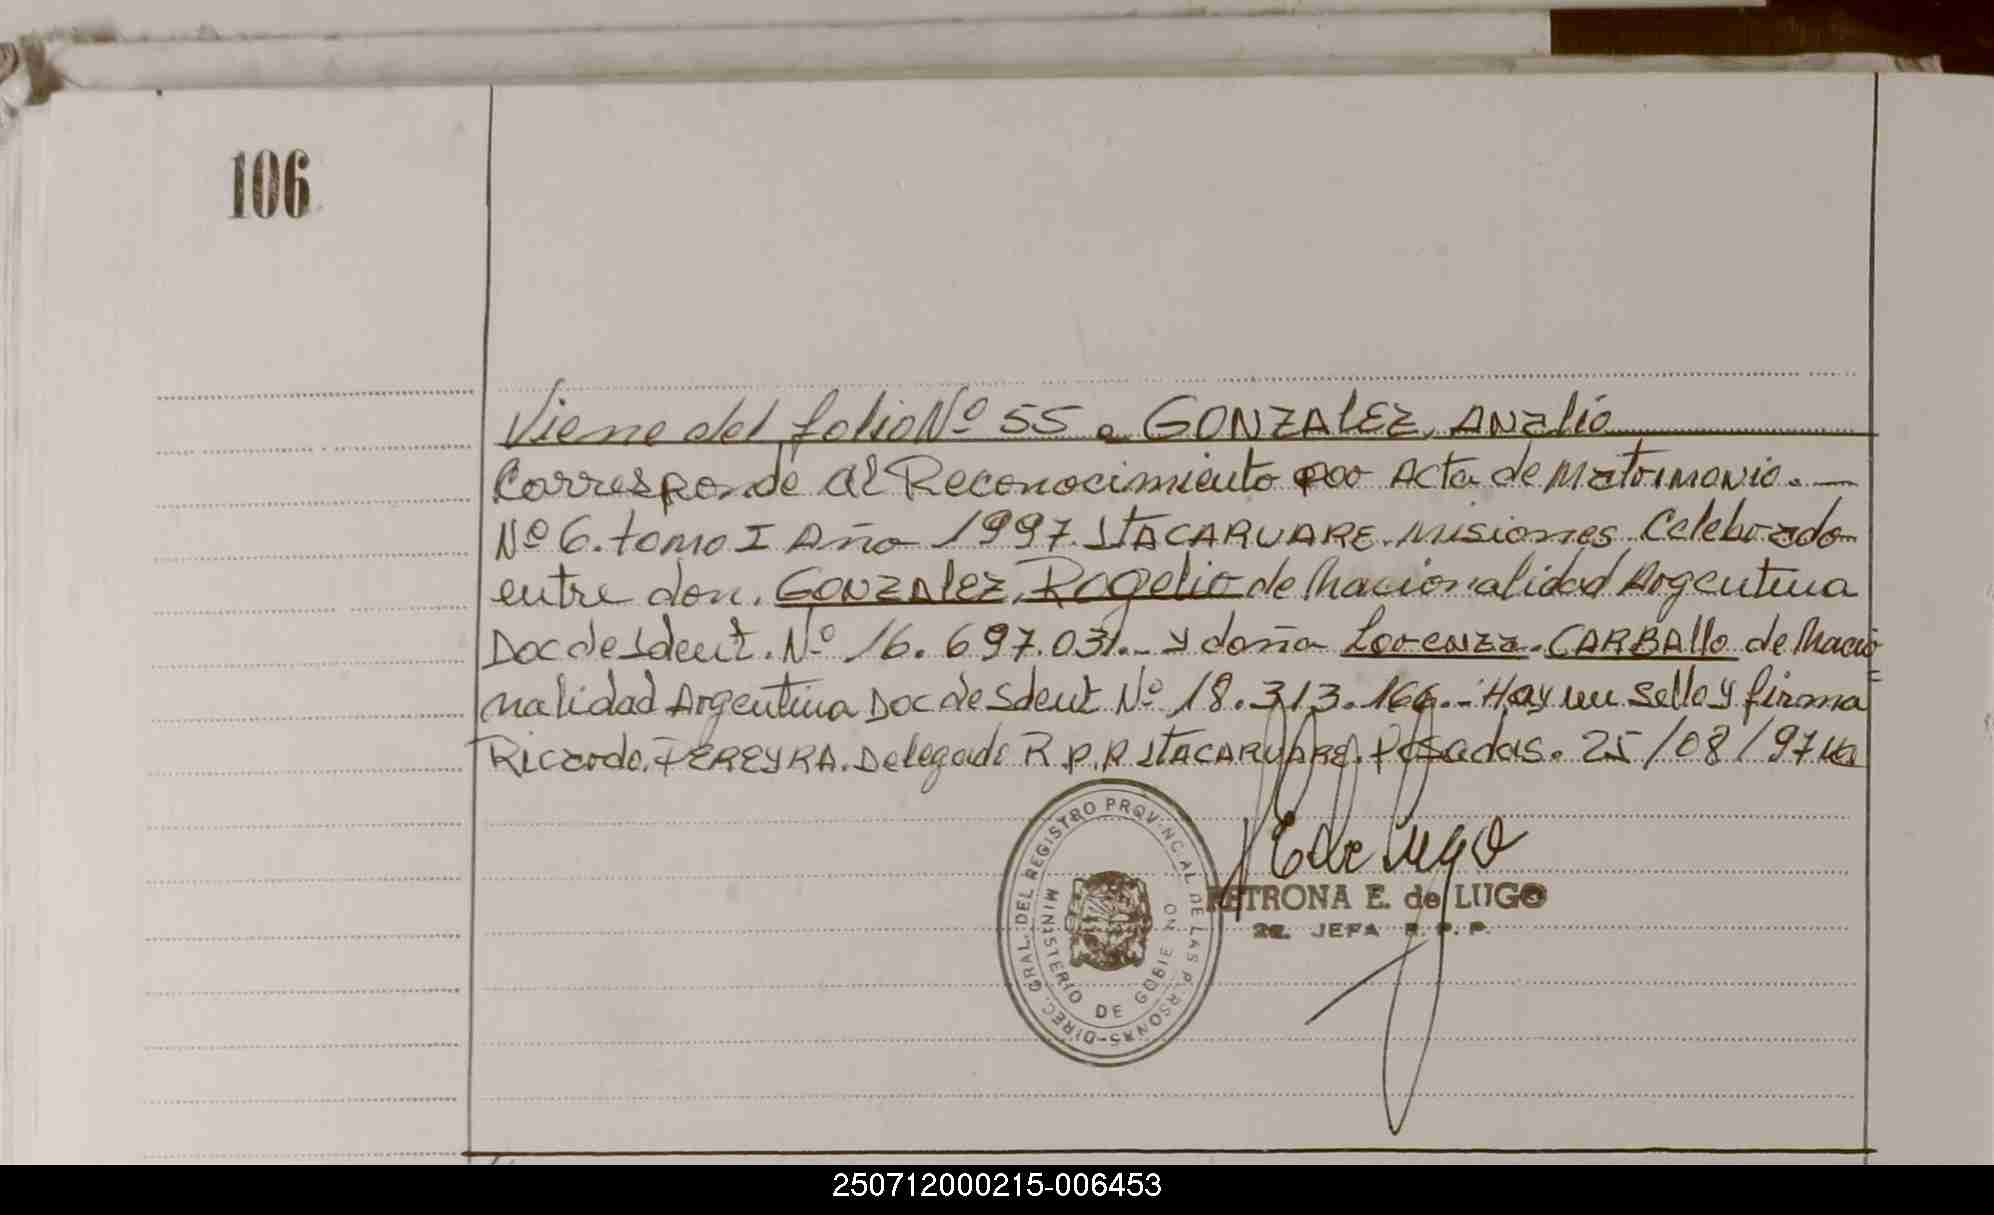 106
Viene del folio Nº 55 a GONZALEZ, ANalio
Corresponde al Reconocimiento por Acta de Matrimonio. —
Nº 6. tomo I Año 1997. ITACARUARE. Misiones. Celebrado
entre don. GONZALEZ, Rogelio de Nacionalidad Argentina
Doc de Ident. Nº 16.697.031.- y doña Lorenza. CARBAllo de Nacio
nalidad Argentina Doc de Ident Nº 18.313.166.- Hay un Sello y firma
Ricardo. PEREYRA. Delegado R.P.P. ITACARUARE. Posadas. 25/08/97
DIREC. GRAL. DEL REGISTRO PROVINCIAL DE LAS PERSONAS-
MINISTERIO DE GOBIERNO
E de Lugo
PETRONA E. de LUGO
2a. JEFA R.P.P.
250712000215-006453